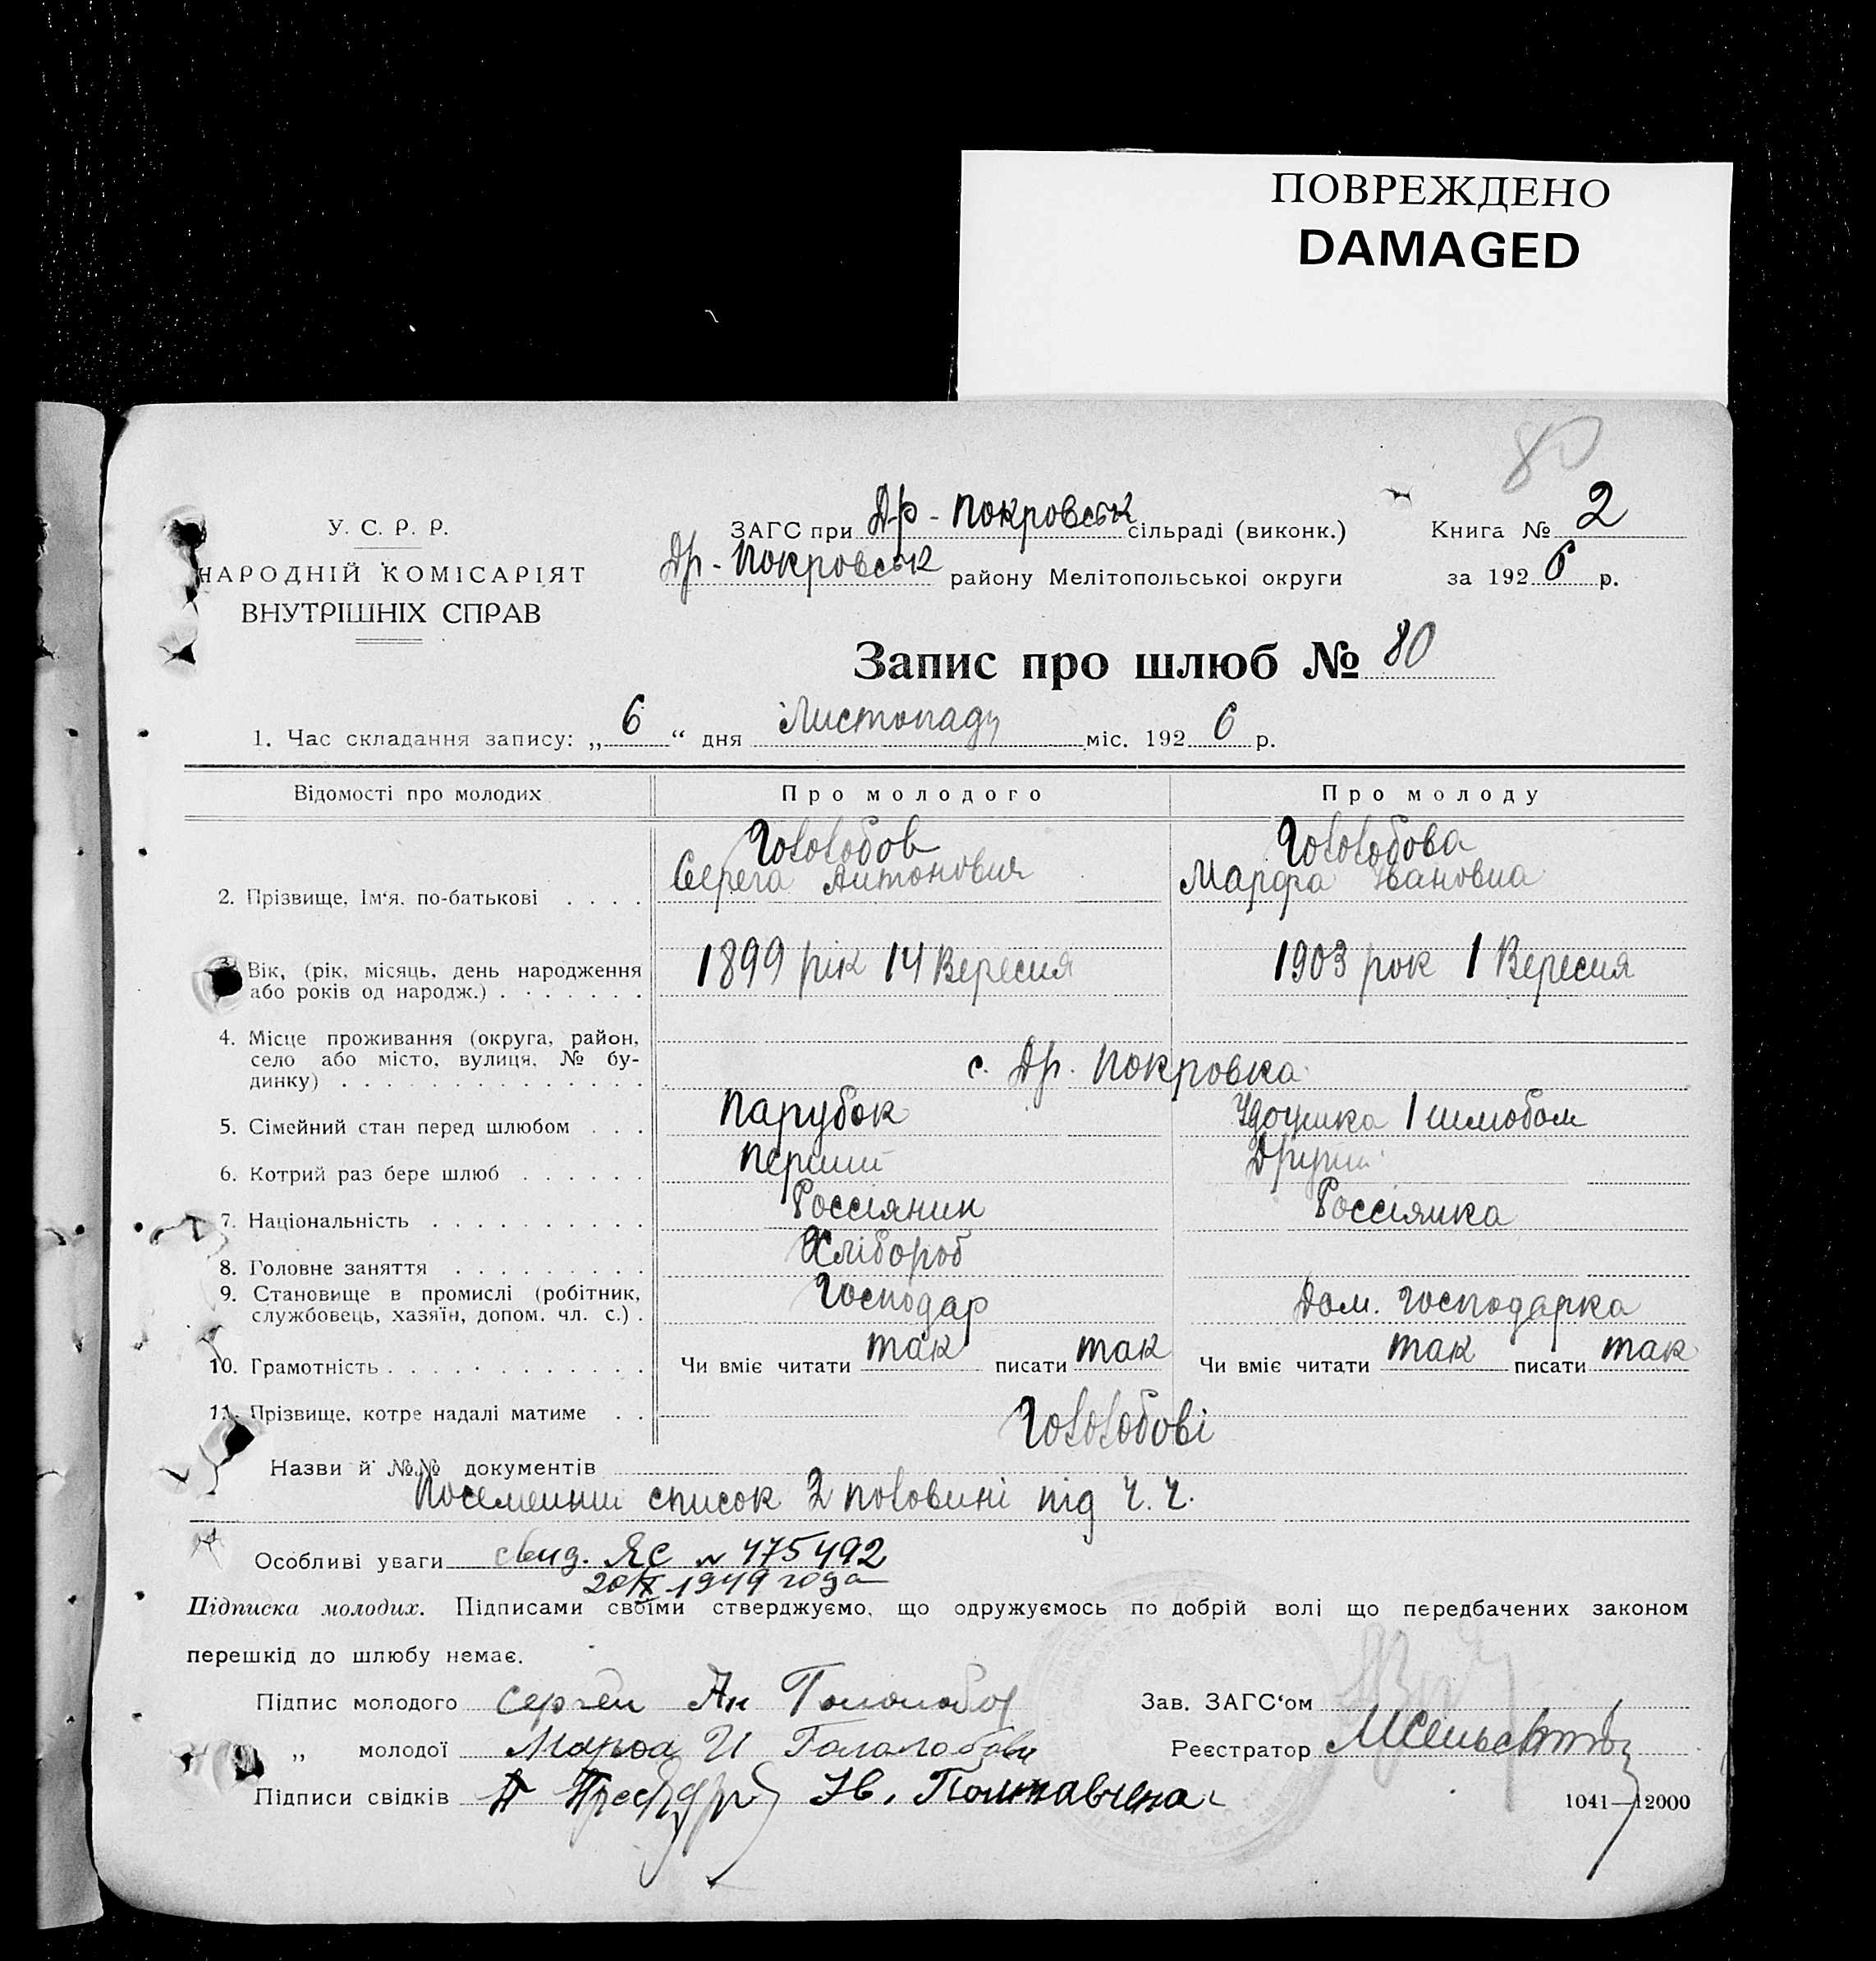 ПОВРЕЖДЕНО
DAMAGED
80
У. С. Р. Р.
НАРОДНІЙ КОМІСАРІЯТ
ВНУТРІШНІХ СПРАВ
ЗАГС при Др-Покровськ сільраді (виконк.)
Др-Покровськ району Мелітопольської округи
Книга № 2
за 192 6 р.
Запис про шлюб № 80
1. Час складання запису: „ 6 “ дня Листопаду міс. 192 6 р.
Відомості про молодих
Про молодого
Про молоду
2. Прізвище, Ім'я, по-батькові . . . .
Гололобов
Серега Антоновия
Гололобова
Марфа Івановна
3. Вік, (рік, місяць, день народження
або років од народж.) . . . . . . .
1899 рік 14 Вересня
1903 рок 1 Вересня
4. Місце проживання (округа, район,
село або місто, вулиця, № бу-
динку) . . . . . . . . . . . . . .
с. Др. Покровка
5. Сімейний стан перед шлюбом . . .
Парубок
Удоушка 1 шлюбом
6. Котрий раз бере шлюб . . . . . .
Перший
Другий
7. Національність . . . . . . . . . .
Россіянин
Россіянка
8. Головне заняття . . . . . . . . .
Хлібороб
9. Становище в промислі (робітник,
службовець, хазяїн, допом. чл. с.) .
Господар
Дом. господарка
10. Грамотність . . . . . . . . . . .
Чи вміє читати так писати так
Чи вміє читати так писати так
11. Прізвище, котре надалі матиме . .
Гололобові
Назви й №№ документів
Посемейний список 2 половині під ч. ч.
Особливі уваги свид. ЯС № 475492
20/X 1949 года
Підписка молодих. Підписами своїми стверджуємо, що одружуємось по добрій волі що передбачених законом
перешкід до шлюбу немає.
Підпис молодого Сергей Ан Гололобов
Зав. ЗАГС'ом
„ молодої Марфа И Гололобова
Реєстратор
Підписи свідків Ив. Полтавчена
1041—12000